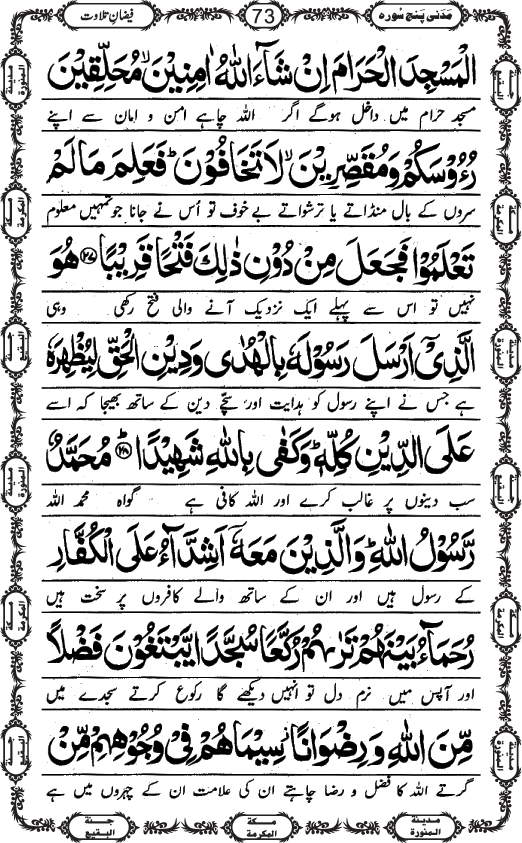 مَدَنی پَنج سُورہ
73
فیضانِ تلاوت
الْمَسْجِدَ الْحَرَامَ اِنْ شَآءَ اللّٰهُ اٰمِنِیْنَ ۙ مُحَلِّقِیْنَ
مسجد حرام میں داخل ہوگے اگر اللہ چاہے امن و امان سے اپنے
رُءُوْسَكُمْ وَ مُقَصِّرِیْنَ ۙ لَا تَخَافُوْنَ ؕ فَعَلِمَ مَا لَمْ
سروں کے بال منڈاتے یا ترشواتے بے خوف تو اُس نے جانا جو تمہیں معلوم
تَعْلَمُوْا فَجَعَلَ مِنْ دُوْنِ ذٰلِكَ فَتْحًا قَرِیْبًا ﴿۲۷﴾ هُوَ
نہیں تو اس سے پہلے ایک نزدیک آنے والی فتح رکھی وہی
الَّذِیْۤ اَرْسَلَ رَسُوْلَهٗ بِالْهُدٰى وَ دِیْنِ الْحَقِّ لِیُظْهِرَهٗ
ہے جس نے اپنے رسول کو ہدایت اور سچے دین کے ساتھ بھیجا کہ اسے
عَلَى الدِّیْنِ كُلِّهٖ ؕ وَ كَفٰى بِاللّٰهِ شَهِیْدًا ﴿۲۸﴾ مُحَمَّدٌ
سب دینوں پر غالب کرے اور اللہ کافی ہے گواہ محمد اللہ
رَّسُوْلُ اللّٰهِ ؕ وَ الَّذِیْنَ مَعَهٗۤ اَشِدَّآءُ عَلَى الْكُفَّارِ
کے رسول ہیں اور ان کے ساتھ والے کافروں پر سخت ہیں
رُحَمَآءُ بَیْنَهُمْ تَرٰىهُمْ رُكَّعًا سُجَّدًا یَّبْتَغُوْنَ فَضْلًا
اور آپس میں نرم دل تو انہیں دیکھے گا رکوع کرتے سجدے میں
مِّنَ اللّٰهِ وَ رِضْوَانًا ؗ سِیْمَاهُمْ فِیْ وُجُوْهِهِمْ مِّنْ
گرتے اللہ کا فضل و رضا چاہتے ان کی علامت ان کے چہروں میں ہے
مدینة المنورة
مكة المكرمة
جنة البقيع
مدینة المنورة
مكة المكرمة
جنة البقيع
جنة البقيع
مكة المكرمة
مدینة المنورة
جنة البقيع
مكة المكرمة
مدینة المنورة
مدینة المنورة
مكة المكرمة
جنة البقيع